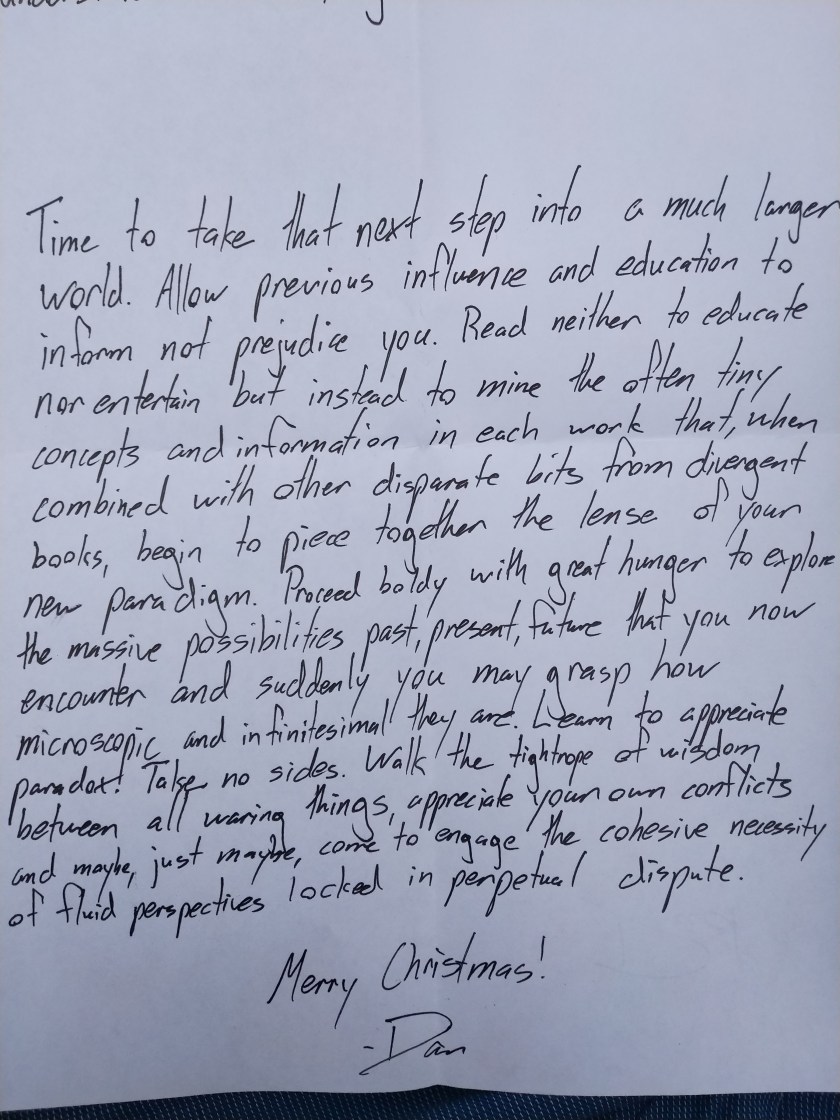 Time to take that next step into a much larger
world. Allow previous influence and education to
inform not prejudice you. Read neither to educate
nor entertain but instead to mine the often tiny
concepts and information in each work that, when
combined with other disparate bits from divergent
books, begin to piece together the lense of your
new paradigm. Proceed boldy with great hunger to explore
the massive possibilities, past, present, future that you now
encounter and suddenly you may grasp how
microscopic and infinitesimal they are. Learn to appreciate
paradox! Take no sides. Walk the tightrope of wisdom
between all waring things, appreciate your own conflicts
and maybe, just maybe, come to engage the cohesive necessity
of fluid perspectives locked in perpetual dispute.
Merry Christmas!
-Dan